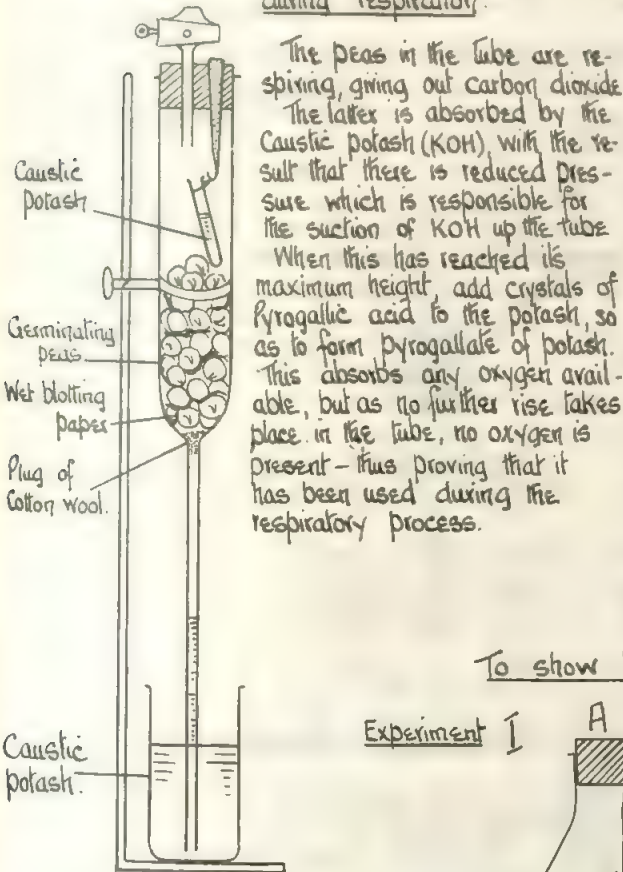 during respiration.
The peas in the tube are re-
spiring, giving out carbon dioxide
The latter is absorbed by the
Caustic potash (KOH), with the re-
sult that there is reduced pres-
sure which is responsible for
the suction of KOH up the tube
When this has reached its
maximum height, add crystals of
Pyrogallic acid to the potash, so
as to form pyrogallate of potash.
This absorbs any oxygen avail-
able, but as no further rise takes
place in the tube, no oxygen is
present - thus proving that it
has been used during the
respiratory process.
Caustic
potash
Germinating
peas
Wet blotting
paper
Plug of
Cotton wool.
Caustic
potash.
To show
Experiment I
A